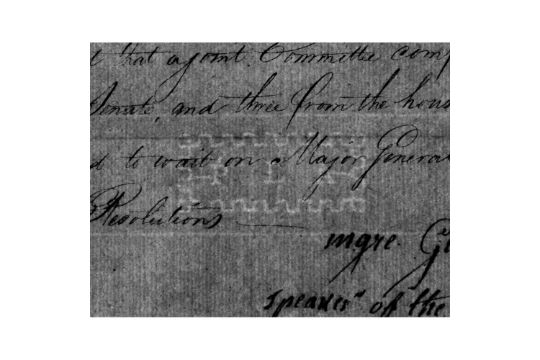 t that a joint Committee comp
Senate, and three from the hous
d to wait on Major General
Resolutions
mgre. Ge
Speaker of the